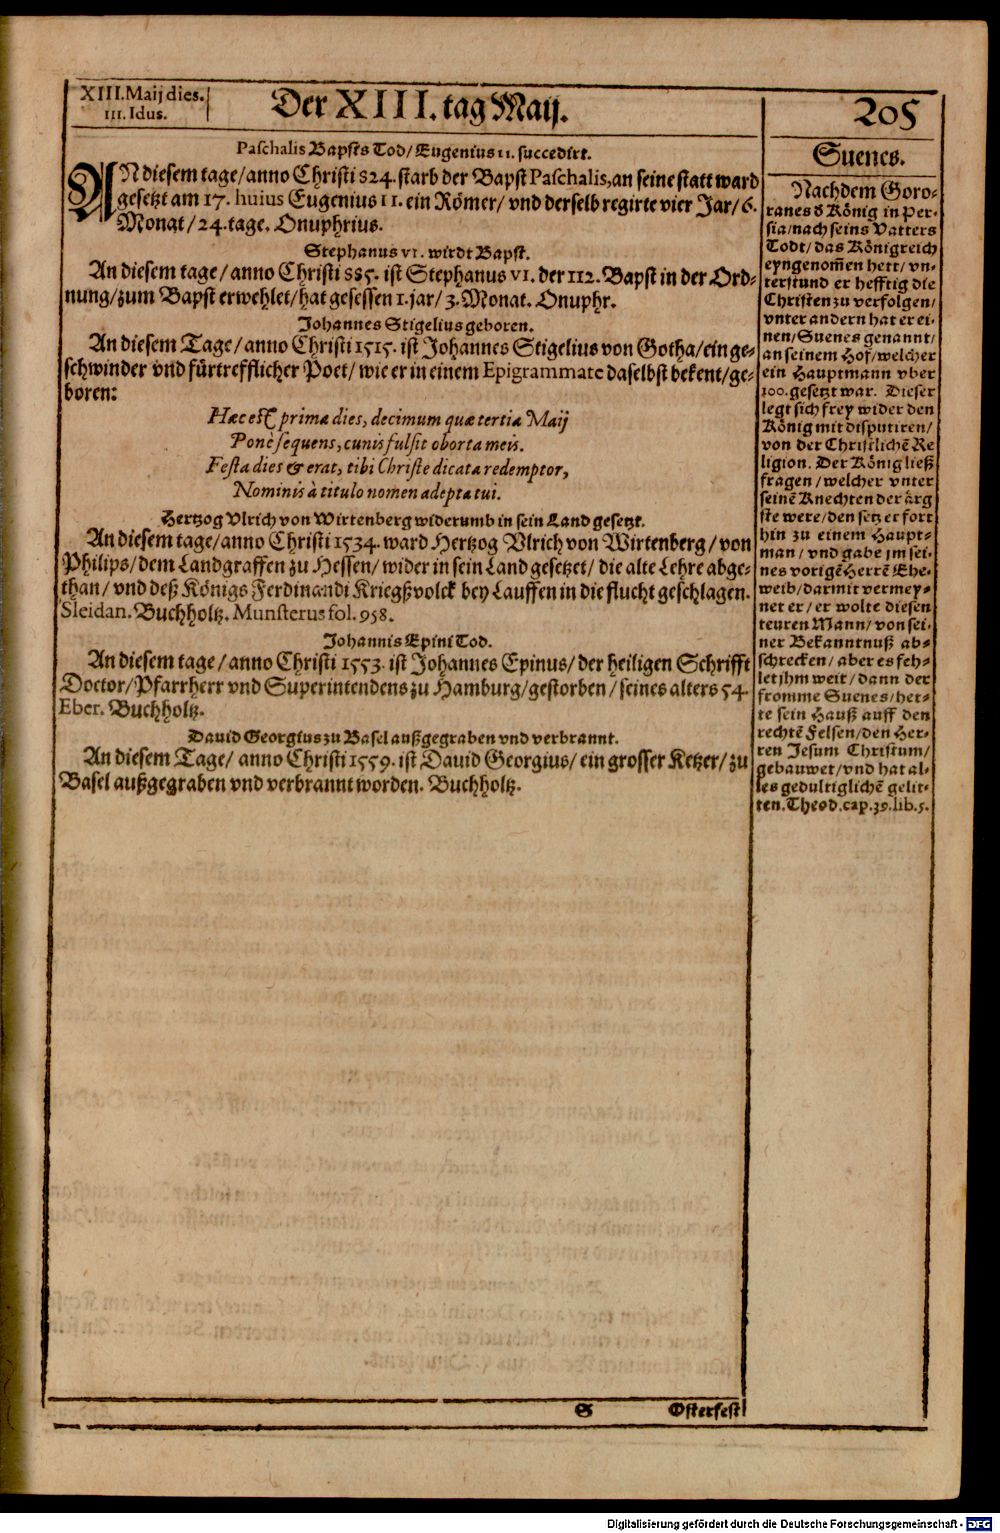 XIII. Maij dies.
III. Idus.
Der XIII. tag Maij.
205
Paschalis Bapsts Tod/ Eugenius II. succedirt.
AN diesem tage/ anno Christi 824. starb der Bapst Paschalis, an seine statt ward
gesetzt am 17. huius Eugenius II. ein Römer/ vnd derselb regirte vier Jar/ 6.
Monat/ 24. tage. Onuphrius.
Stephanus VI. wirdt Bapst.
An diesem tage/ anno Christi 885. ist Stephanus VI. der 112. Bapst in der Ord-
nung/ zum Bapst erwehlet/ hat gesessen 1. jar/ 3. Monat. Onuphr.
Johannes Stigelius geboren.
An diesem Tage/ anno Christi 1515. ist Johannes Stigelius von Gotha/ ein ge-
schwinder vnd fürtrefflicher Poet/ wie er in einem Epigrammate daselbst bekent/ ge-
boren:
Hæc est prima dies, decimum quæ tertia Maij
Ponè sequens, cunis fulsit oborta meis.
Festa dies & erat, tibi Christe dicata redemptor,
Nominis à titulo nomen adepta tui.
Hertzog Vlrich von Wirtenberg widerumb in sein Land gesetzt.
An diesem tage/ anno Christi 1534. ward Hertzog Vlrich von Wirtenberg/ von
Philips/ dem Landgraffen zu Hessen/ wider in sein Land gesetzet/ die alte Lehre abge-
than/ vnd deß Königs Ferdinandi Kriegßvolck bey Lauffen in die flucht geschlagen.
Sleidan. Buchholtz. Munsterus fol. 958.
Johannis Epini Tod.
An diesem tage/ anno Christi 1553. ist Johannes Epinus/ der heiligen Schrifft
Doctor/ Pfarrherr vnd Superintendens zu Hamburg/ gestorben/ seines alters 54.
Eber. Buchholtz.
Dauid Georgius zu Basel außgegraben vnd verbrannt.
An diesem Tage/ anno Christi 1559. ist Dauid Georgius/ ein grosser Ketzer/ zu
Basel außgegraben vnd verbrannt worden. Buchholtz.
Suenes.
Nachdem Goro-
ranes d' König in Per-
sia/ nach seins Vatters
Todt/ das Königreich
eyngenom̃en hett/ vn-
terstund er hefftig die
Christen zu verfolgen/
vnter andern hat er ei-
nen/ Suenes genannt/
an seinem Hof/ welcher
ein Hauptmann vber
100. gesetzt war. Dieser
legt sich frey wider den
König mit disputiren/
von der Christlichẽ Re
ligion. Der König ließ
fragen/ welcher vnter
seinẽ Knechten der ärg
ste were/ den setz er fort
hin zu einem Haupt-
man/ vnd gabe jm sei-
nes vorigẽ Herrẽ Ehe-
weib/ darmit vermey-
net er/ er wolte diesen
teuren Mann/ von sei-
ner Bekanntnuß ab-
schrecken/ aber es feh-
let jhm weit/ dann der
fromme Suenes/ het-
te sein Hauß auff den
rechtẽ Felsen/ den Her-
ren Jesum Christum/
gebauwet/ vnd hat al-
les gedultiglichẽ gelit-
ten. Theod. cap. 39. lib. 5.
S
Osterfest
Digitalisierung gefördert durch die Deutsche Forschungsgemeinschaft - DFG